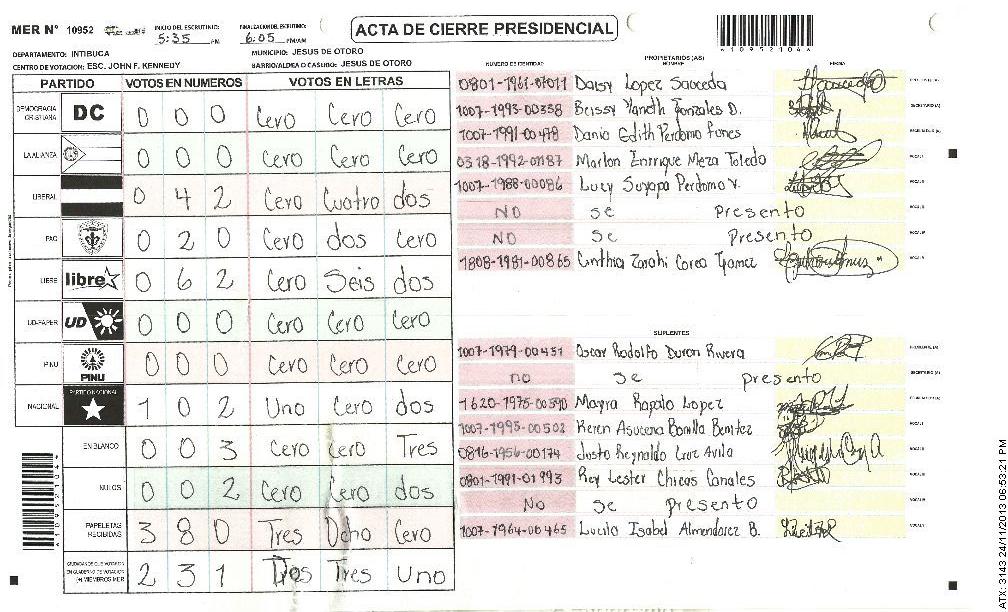 MER Nº 10952
INICIO DEL ESCRUTINIO: 5:35 PM
FINALIZACION DEL ESCRUTINIO: 6:05 PM/AM
ACTA DE CIERRE PRESIDENCIAL
*10952104*
DEPARTAMENTO: INTIBUCA
MUNICIPIO: JESUS DE OTORO
CENTRO DE VOTACION: ESC. JOHN F. KENNEDY
BARRIO/ALDEA O CASERIO: JESUS DE OTORO
PARTIDO VOTOS EN NUMEROS VOTOS EN LETRAS
DEMOCRACIA CRISTIANA DC 0 0 0 Cero Cero Cero
LA ALIANZA 0 0 0 Cero Cero Cero
LIBERAL 0 4 2 Cero Cuatro dos
PAC 0 2 0 Cero dos Cero
LIBRE libre 0 6 2 Cero Seis dos
UD-FAPER UD 0 0 0 Cero Cero Cero
PINU PINU 0 0 0 Cero Cero Cero
NACIONAL PARTIDO NACIONAL 1 0 2 Uno Cero dos
EN BLANCO 0 0 3 Cero Cero Tres
NULOS 0 0 2 Cero Cero dos
PAPELETAS RECIBIDAS 3 8 0 Tres Ocho Cero
CIUDADANOS QUE VOTARON EN CUADERNO DE VOTACION (+) MIEMBROS MER 2 3 1 Tres Uno
*10952104*
PROPIETARIOS (AS)
NUMERO DE IDENTIDAD NOMBRE FIRMA
0801-1961-07011 Daisy Lopez Sauceda
1007-1993-00358 Beissy Yaneth Gonzales D. SECRETARIO (A)
1007-1991-00478 Dania Edith Perdomo Funes
0318-1992-01187 Marlon Enrrique Meza Toledo
1007-1988-00086 Lucy Suyapa Perdomo V.
NO se Presento
NO se Presento
1808-1981-00865 Cinthia Zarahi Corea Gomez
SUPLENTES
1007-1979-00451 Oscar Rodolfo Duron Rivera PRESIDENTE (A)
no se presento SECRETARIO (A)
1620-1975-00390 Mayra Rapalo Lopez
1007-1993-00502 Keren Asucena Bonilla Benitez
0816-1956-00174 Justo Reynaldo Cruz Avila
0801-1991-01993 Rey Lester Chicas Canales
No se presento
1007-1964-00465 Lucila Isabel Almendarez B.
ATX: 3143 24/11/2013 06:53:21 PM